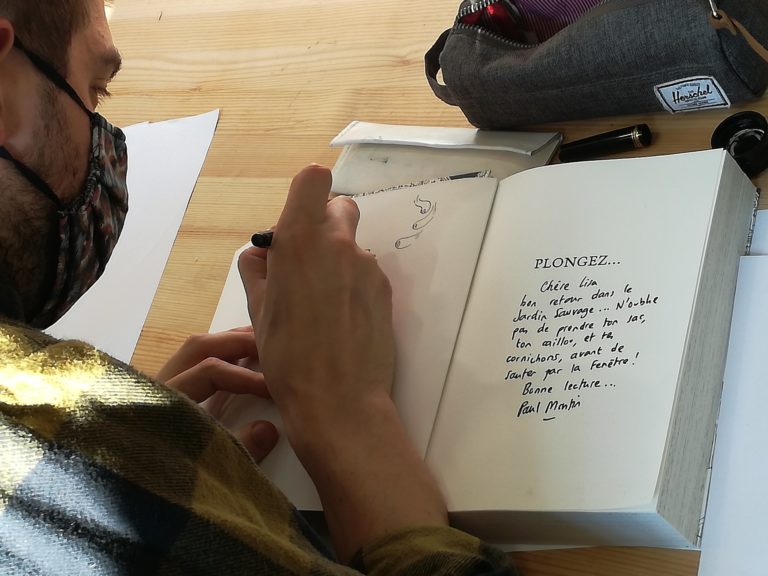 Herschel
PLONGEZ...
Chère Lisa
bon retour dans le
Jardin Sauvage... N'oublie
pas de prendre ton sac,
ton caillou, et tes
cornichons, avant de
sauter par la fenêtre !
Bonne lecture...
Paul Martin